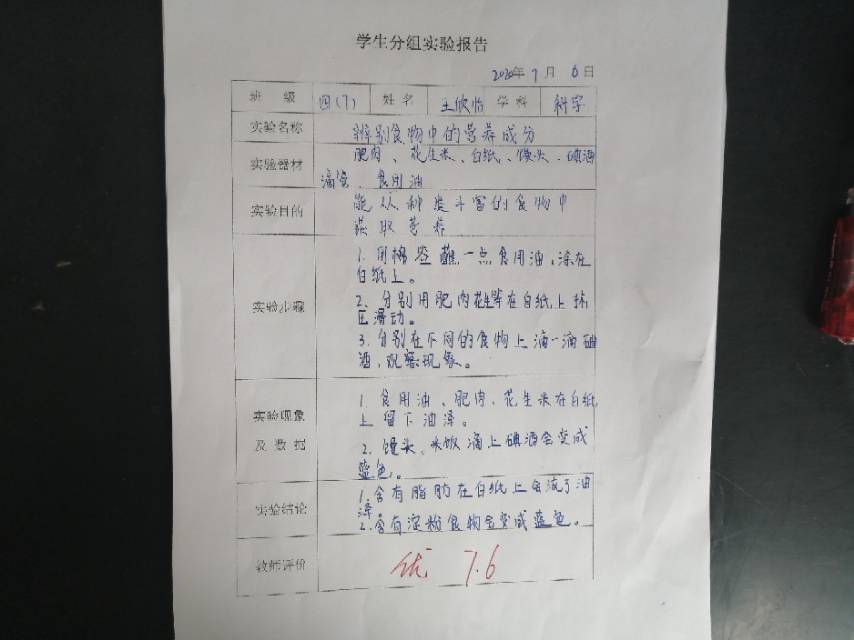 学生分组实验报告
2020年7月6日
班 级 四(7) 姓名 王欣怡 学科 科学
实验名称 辨别食物中的营养成分
实验器材 肥肉、花生米、白纸、馒头、碘酒
滴管、食用油
实验目的 能从种类丰富的食物中
获取营养
实验步骤 1. 用棉签蘸一点食用油,涂在
白纸上。
2、分别用肥肉花生等在白纸上挤
压滑动。
3. 分别在不同的食物上滴一滴碘
酒,观察现象。
实验现象及数据 1. 食用油、肥肉、花生米在白纸
上留下油渍。
2. 馒头、米饭滴上碘酒会变成
蓝色。
实验结论 1. 含有脂肪在白纸上会流了油
渍。
2. 含有淀粉食物会变成蓝色。
教师评价 优 7.6